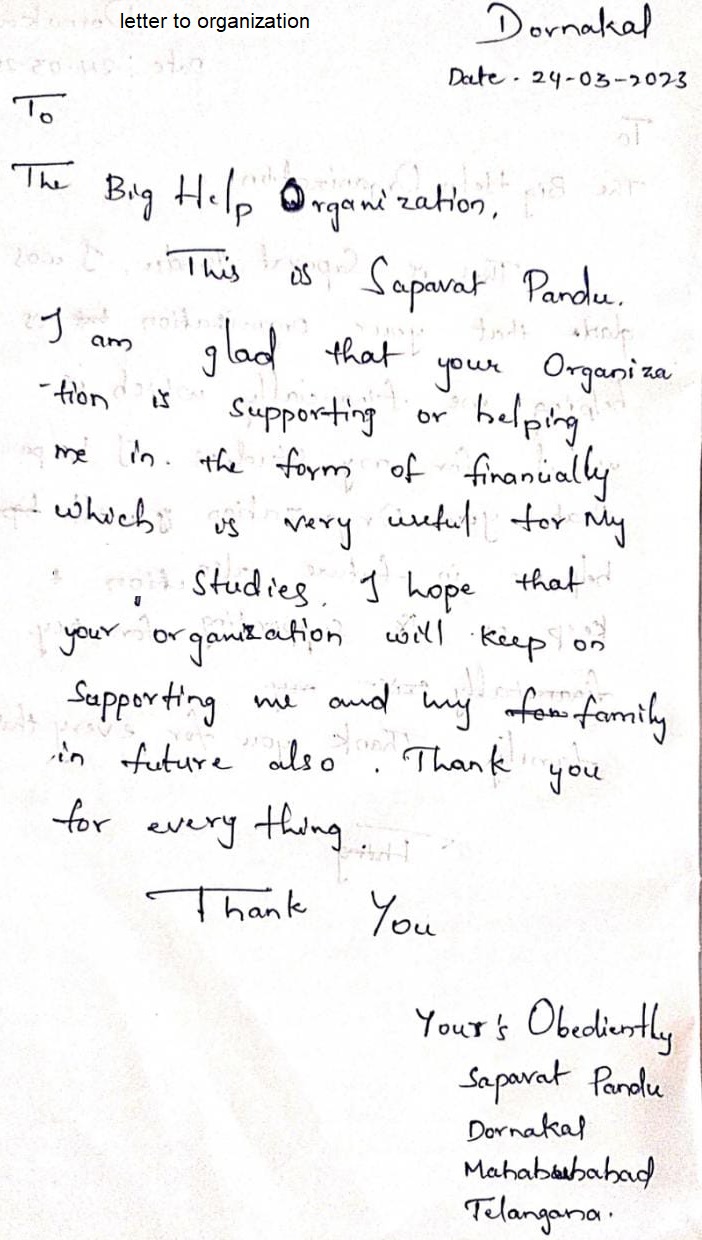 letter to organization
Dornakal
Date. 24-03-2023
To
The Big Help Organization,
This is Sapavat Pandu.
I am glad that your Organiza
-tion is supporting or helping
me in. the form of financially
which is very useful for My
Studies. I hope that
your organization will keep on
Supporting me and my fam family
in future also. Thank you
for every thing.
Thank You
Your's Obediently
Sapavat Pandu
Dornakal
Mahabubabad
Telangana.